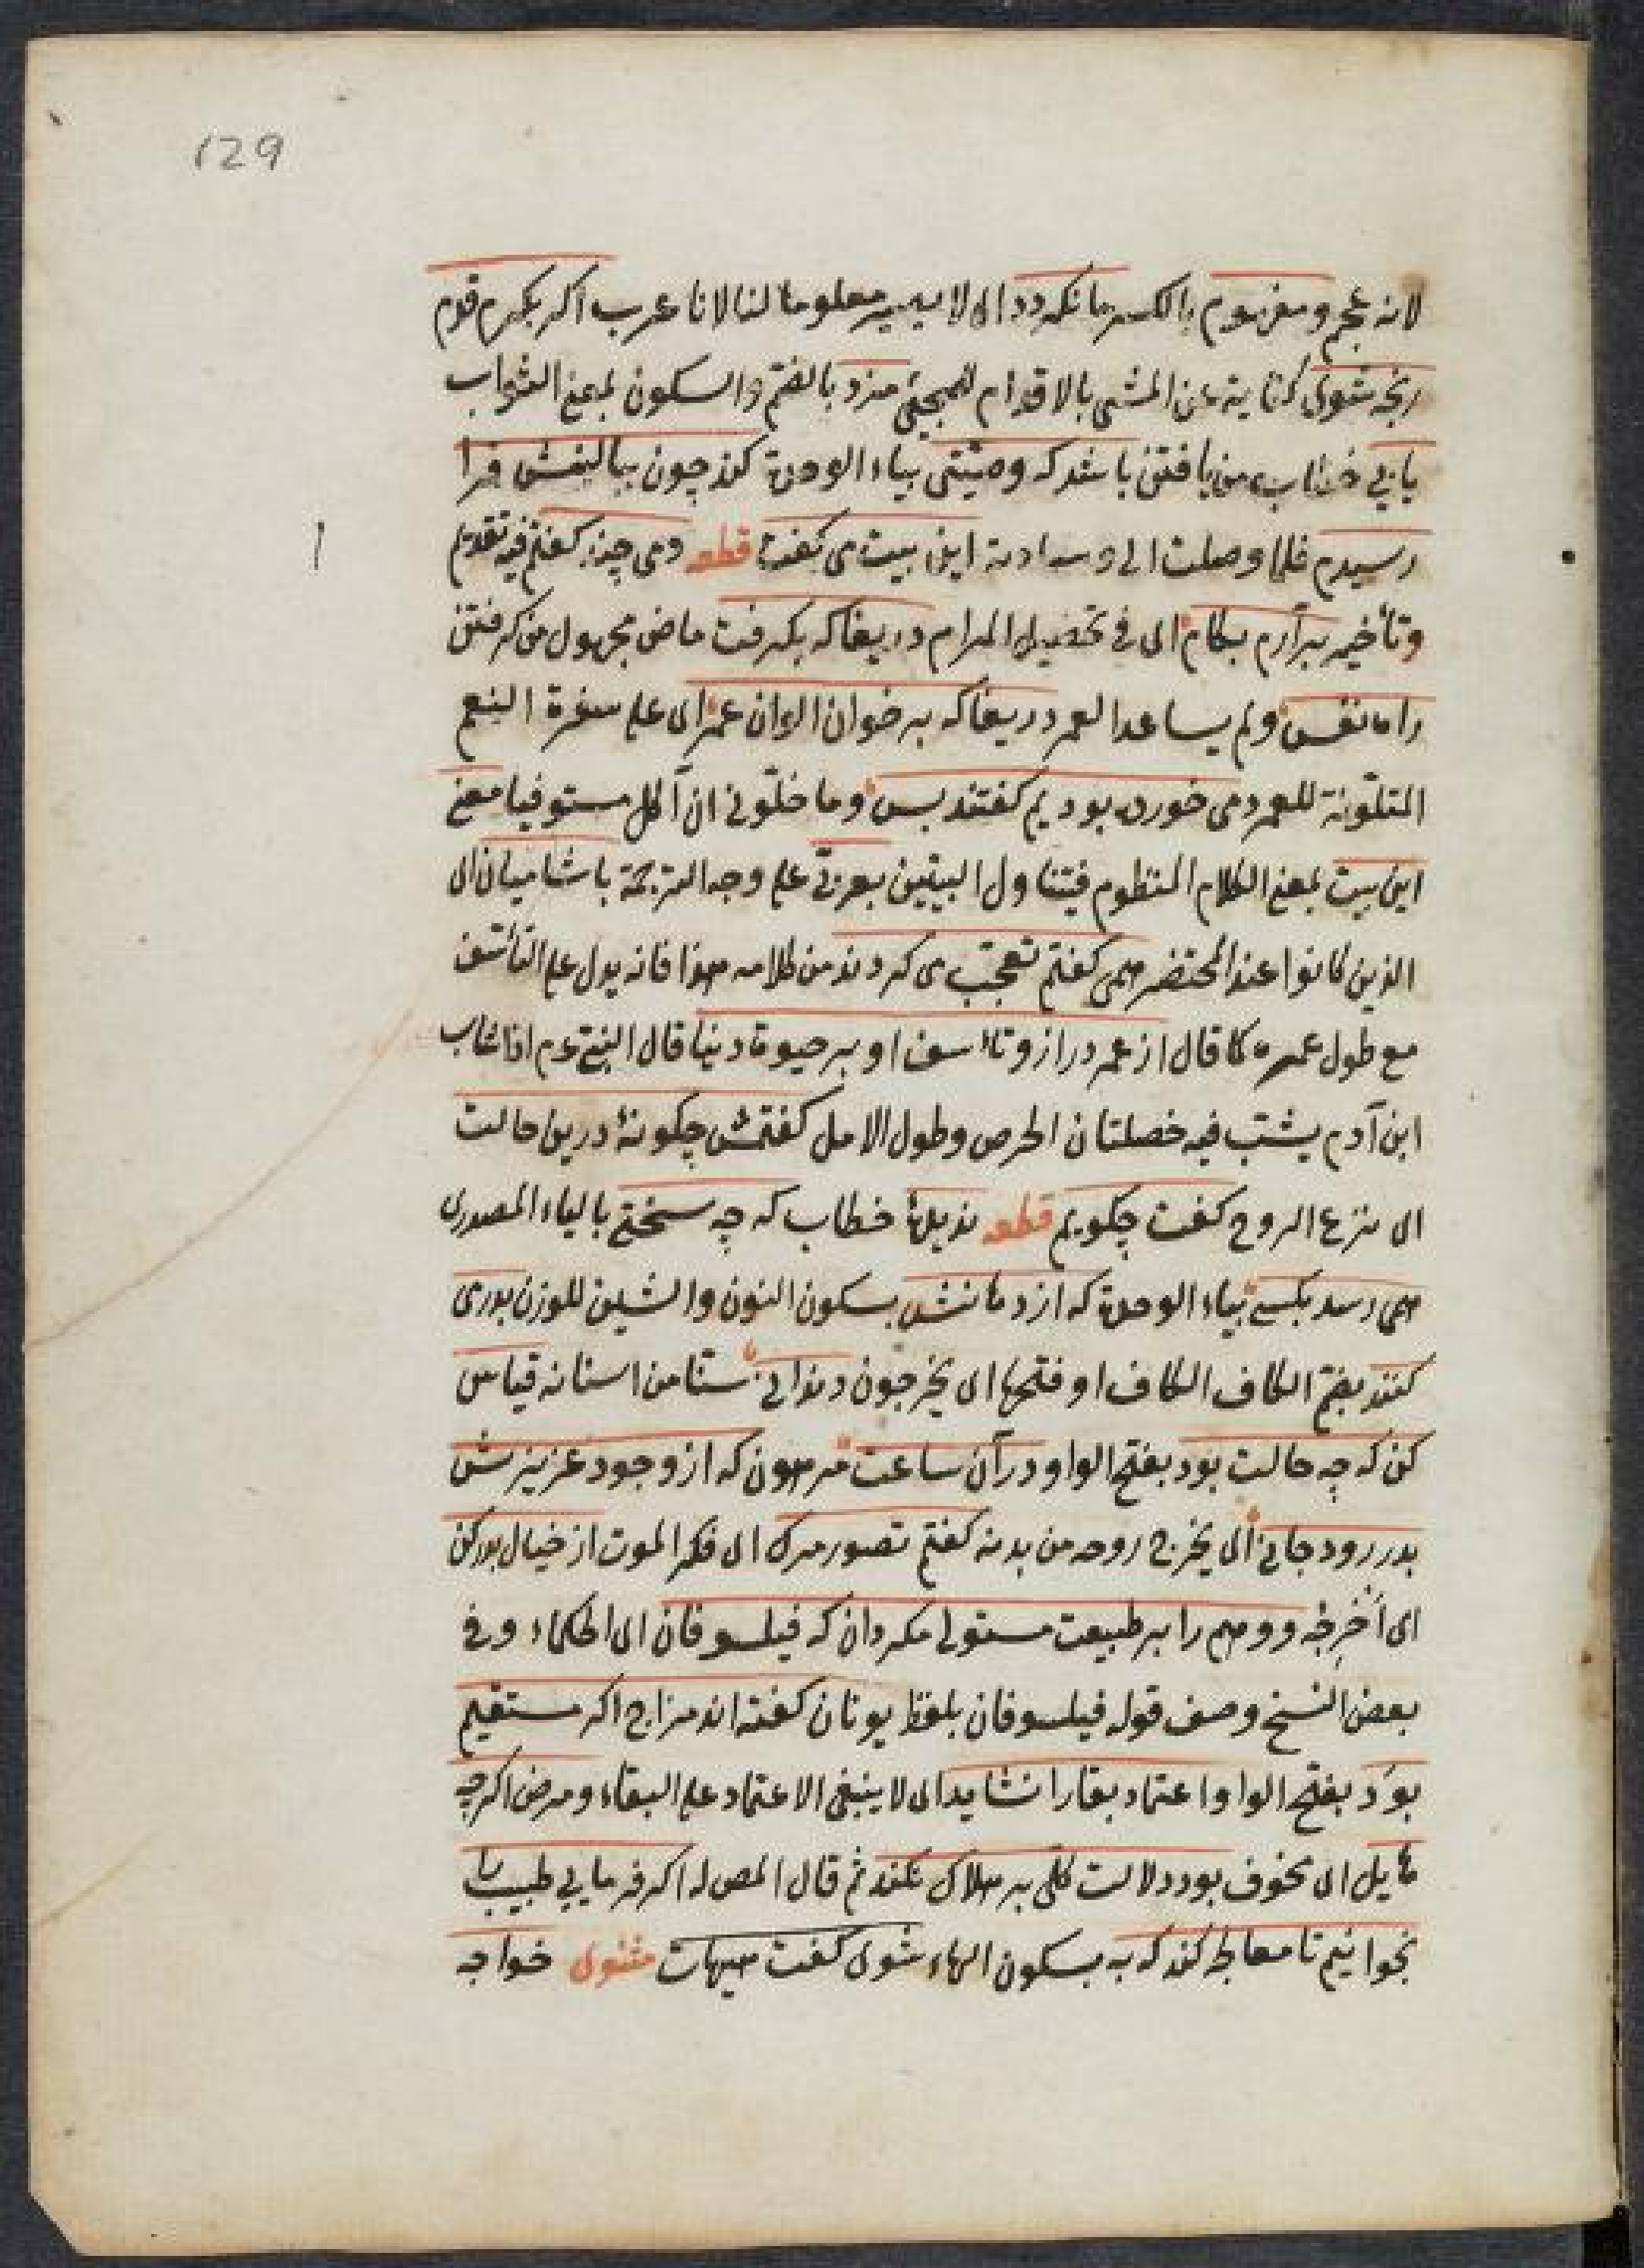 129
لانه عجم ومفهوم بالكسر ما نكردد اى لا يصير معلوما لنا لانا عرب اكر بكرم قدم
رنجه شوى كناية عن المشى بالاقدام للمجئ مزد بالضم والسكون بمعنى الثواب
يابى خطاب من يافتن باشد كه وصيتى بياء الوحدة كند چون ببالينش فرا
رسيدم فلما وصلت الى وسادته اين بيت مى كفت قطعه دمى چند كفتم فيه تقديم
وتأخير برآرم بكام اى فى تحصيل المرام دريغا كه بكرفت ماض مجهول من كرفتن
راه نفس ولم يساعد العمر دريغا كه بر خوان الوان عمر اى على سفرة النعم
المتلونة للعمر دمى خورده بوديم كفتند بس وما خلونى ان آكل مستوفيا معنى
اين بيت بمعنى الكلام المنظوم فيتناول البيتين بعربى على وجه الترجمة با شاميان اى
الذين كانوا عند المحتضر همى كفتم تعجب مى كردند من كلامه هذا فانه يدل على التأسف
مع طول عمره كما قال از عمر دراز وتاسف او بر حيوة دنيا قال النبى عم اذا شاب
ابن آدم يشب فيه خصلتان الحرص وطول الامل كفتمش چكونۀ درين حالت
اى نزع الروح كفت چكويم قطعه نديدۀ خطاب كه چه سختى بالياء المصدرى
همى رسد بكسى بياء الوحدة كه از دهانش بسكون النون والشين للوزن بدر مى
كنند بفتح الكاف الكاف او فتحها اى يخرجون دندانى سنا من اسنانه قياس
كن كه چه حالت بود بفتح الواو در آن ساعت مرهون كه از وجود عزيزش
بدر رود جانى اى يخرج روحه من بدنه كفتم تصور مرك اى فكر الموت از خيال بدر كن
اى اخرجه ووهم را بر طبيعت مستولى مكردان كه فيلسوفان اى الحكماء وفى
بعض النسخ وصف قوله فيلسوفان بلفظ يونان كفته اند مزاج اكر مستقيم
بود بفتح الواو اعتماد بقا را نشايد اى لا ينبغى الاعتماد على البقاء ومرض اكرچه
هايل اى مخوف بود دلالت كلى بر هلاك نكند ثم قال المص له اكر فرمايى طبيب را
بخوانيم تا معالجه كند كه به بسكون الهاء شوى كفت هيهات مثنوى خواجه